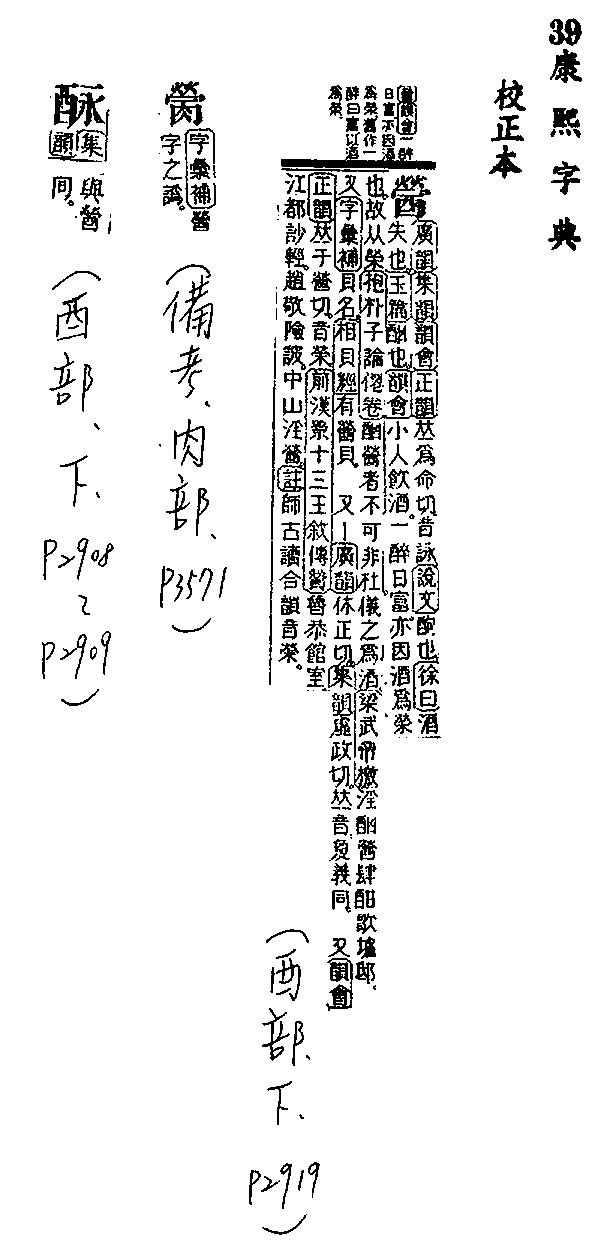 39康熙字典
校正本
韻會一醉
日富亦因酒
爲榮舊作一
醉曰富以酒
爲榮
醟廣韻集韻韻會正韻𠀤爲命切音詠說文酗也徐曰酒
失也玉篇酗也韻會小人飲酒。一醉日富亦因酒爲榮
也。故从榮抱朴子論仙卷酗醟者不可非杜儀之爲酒梁武帝檄淫酗醟肆酣歌壚邸。
又字彙補貝名。相貝經有醟貝 又一廣韻休正切集韻虛政切𠀤音敻義同。又韻會
正韻𠀤于醟切。音榮前漢景十三王敘傳醟魯恭館室
江都訬輕趙敬險詖。中山淫醟註師古讀合韻音榮。
（酉部、下、P2919）
字彙補醟
字之譌。
（備考、肉部、P3571）
集韻與醟
同。
（酉部、下、P2908～P2909）